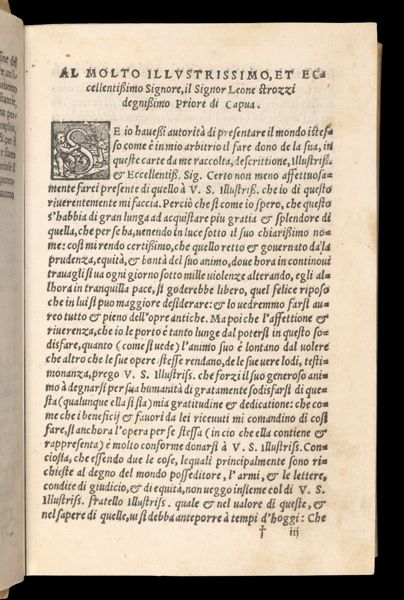 AL MOLTO ILLVSTRISSIMO, ET EC-
cellentißimo Signore, il Signor Leone Strozzi
degnißimo Priore di Capua.
SE io haueßi autorità di presentare il mondo istes-
so come è in mio arbitrio il fare dono de la sua, in
queste carte da me raccolta, descrittione, Illustriß.
& Eccellentiß. Sig. Certo non meno affettuosa-
mente farei presente di quello à V. S. Illustriß. che io di questo
riuerentemente mi faccia. Perciò che si come io spero, che questo
s'habbia di gran lunga ad acquistare piu gratia & splendore di
quella, che per se ha, uenendo in luce sotto il suo chiarißimo no-
me: cosi mi rendo certißimo, che quello retto & gouernato da la
prudenza, equità, & bontà del suo animo, doue hora in continoui
trauagli si ua ogni giorno sotto mille uiolenze alterando, egli al-
lhora in tranquilla pace, si goderebbe libero, quel felice riposo
che in lui si puo maggiore desiderare: & lo uedremmo farsi au-
reo tutto & pieno dell'opre antiche. Ma poi che l'affettione &
riuerenza, che io le porto è tanto lunge dal potersi in questo so-
disfare, quanto (come si uede) l'animo suo è lontano dal uolere
che altro che le sue opere stesse rendano, de le sue uere lodi, testi-
monanza, prego V. S. Illustriss. che forzi il suo generoso ani-
mo à degnarsi per sua humanità di gratamente sodisfarsi di que-
sta (qualunque ella si sia) mia gratitudine & dedicatione: che co-
me che i beneficij & fauori da lei riceuuti mi comandino di cosi
fare, si anchora l'opera per se stessa (in cio che ella contiene &
rappresenta) è molto conforme donarsi à V. S. Illustriss. Con-
ciosia, che essendo due le cose, lequali principalmente sono ri-
chieste al degno del mondo posseditore, l'armi, & le lettere,
condite di giudicio, & di equità, non ueggo insieme col di V. S.
Illustriss. fratello Illustriss. quale & nel ualore di queste, &
nel sapere di quelle, ui si debba anteporre à tempi d'hoggi: Che
† iij